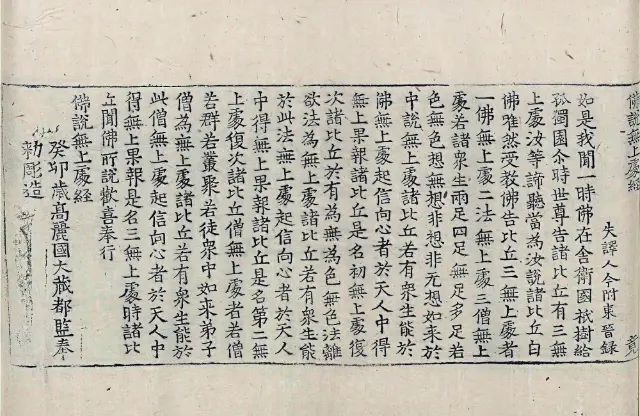 佛說無上處經 竟
失譯人今附東晉錄
如是我聞一時佛在舍衛國祇樹給
孤獨園尒時世尊告諸比丘有三無
上處汝等諦聽當為汝說諸比丘白
佛唯然受教佛告比丘三無上處者
一佛無上處二法無上處三僧無上
處若諸衆生兩足四足無足多足若
色無色想無想非想非无想如來於
中說無上處諸比丘若有衆生能於
佛無上處起信向心者於天人中得
無上果報諸比丘是名初無上處復
次諸比丘於有為無為色無色法離
欲法為無上處諸比丘若有衆生能
於此法無上處起信向心者於天人
中得無上果報諸比丘是名第二無
上處復次諸比丘僧無上處者若僧
若群若叢聚若徒衆中如來弟子
僧為無上處諸比丘若有衆生能於
此僧無上處起信向心者於天人中
得無上果報是名三無上處時諸比
丘聞佛所說歡喜奉行
佛說無上處經
癸卯歲高麗國大藏都監奉
勑彫造